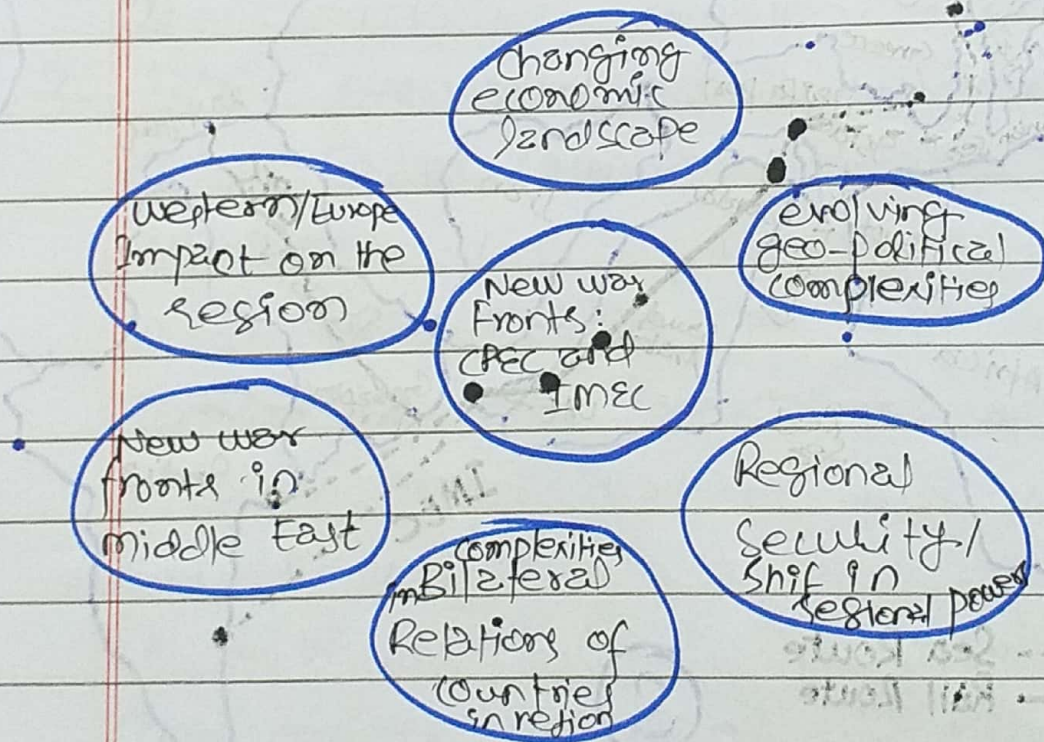 Changing
economic
landscape
Western/Europe
Impact on the
region
evolving
geo-political
complexities
New war
Fronts:
CPEC and
IMEC
New war
fronts in
Middle East
Regional
Security/
Shif in
regional power
complexities
in Bilateral
Relations of
Countries
in retion
IMEC
Sea Route
Rail Route